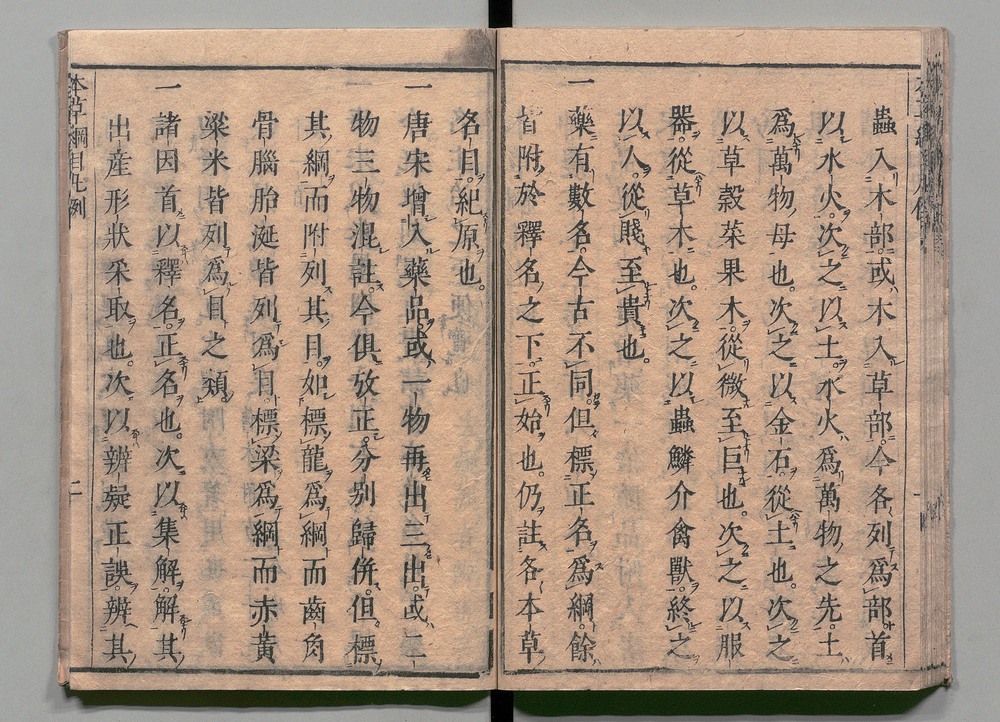 蟲入木部或木入草部今各列爲部首
以水火次之以土水火爲萬物之先土
爲萬物母也次之以金石從土也次之
以草穀菜果木從微至巨也次之以服
器從草木也次之以蟲鱗介禽獸終之
以人從賤至貴也
一藥有數名今古不同但標正名爲綱餘
皆附於釋名之下正始也仍註各本草
名目紀原也
一唐宋增入藥品或一物再出三出或二
物三物混註今俱攷正分別歸併但標
其綱而附列其目如標龍爲綱而齒角
骨腦胎涎皆列爲目標粱爲綱而赤黃
粱米皆列爲目之類
一諸因首以釋名正名也次以集解解其
出產形狀采取也次以辨疑正誤辨其
本草綱目凡例
二